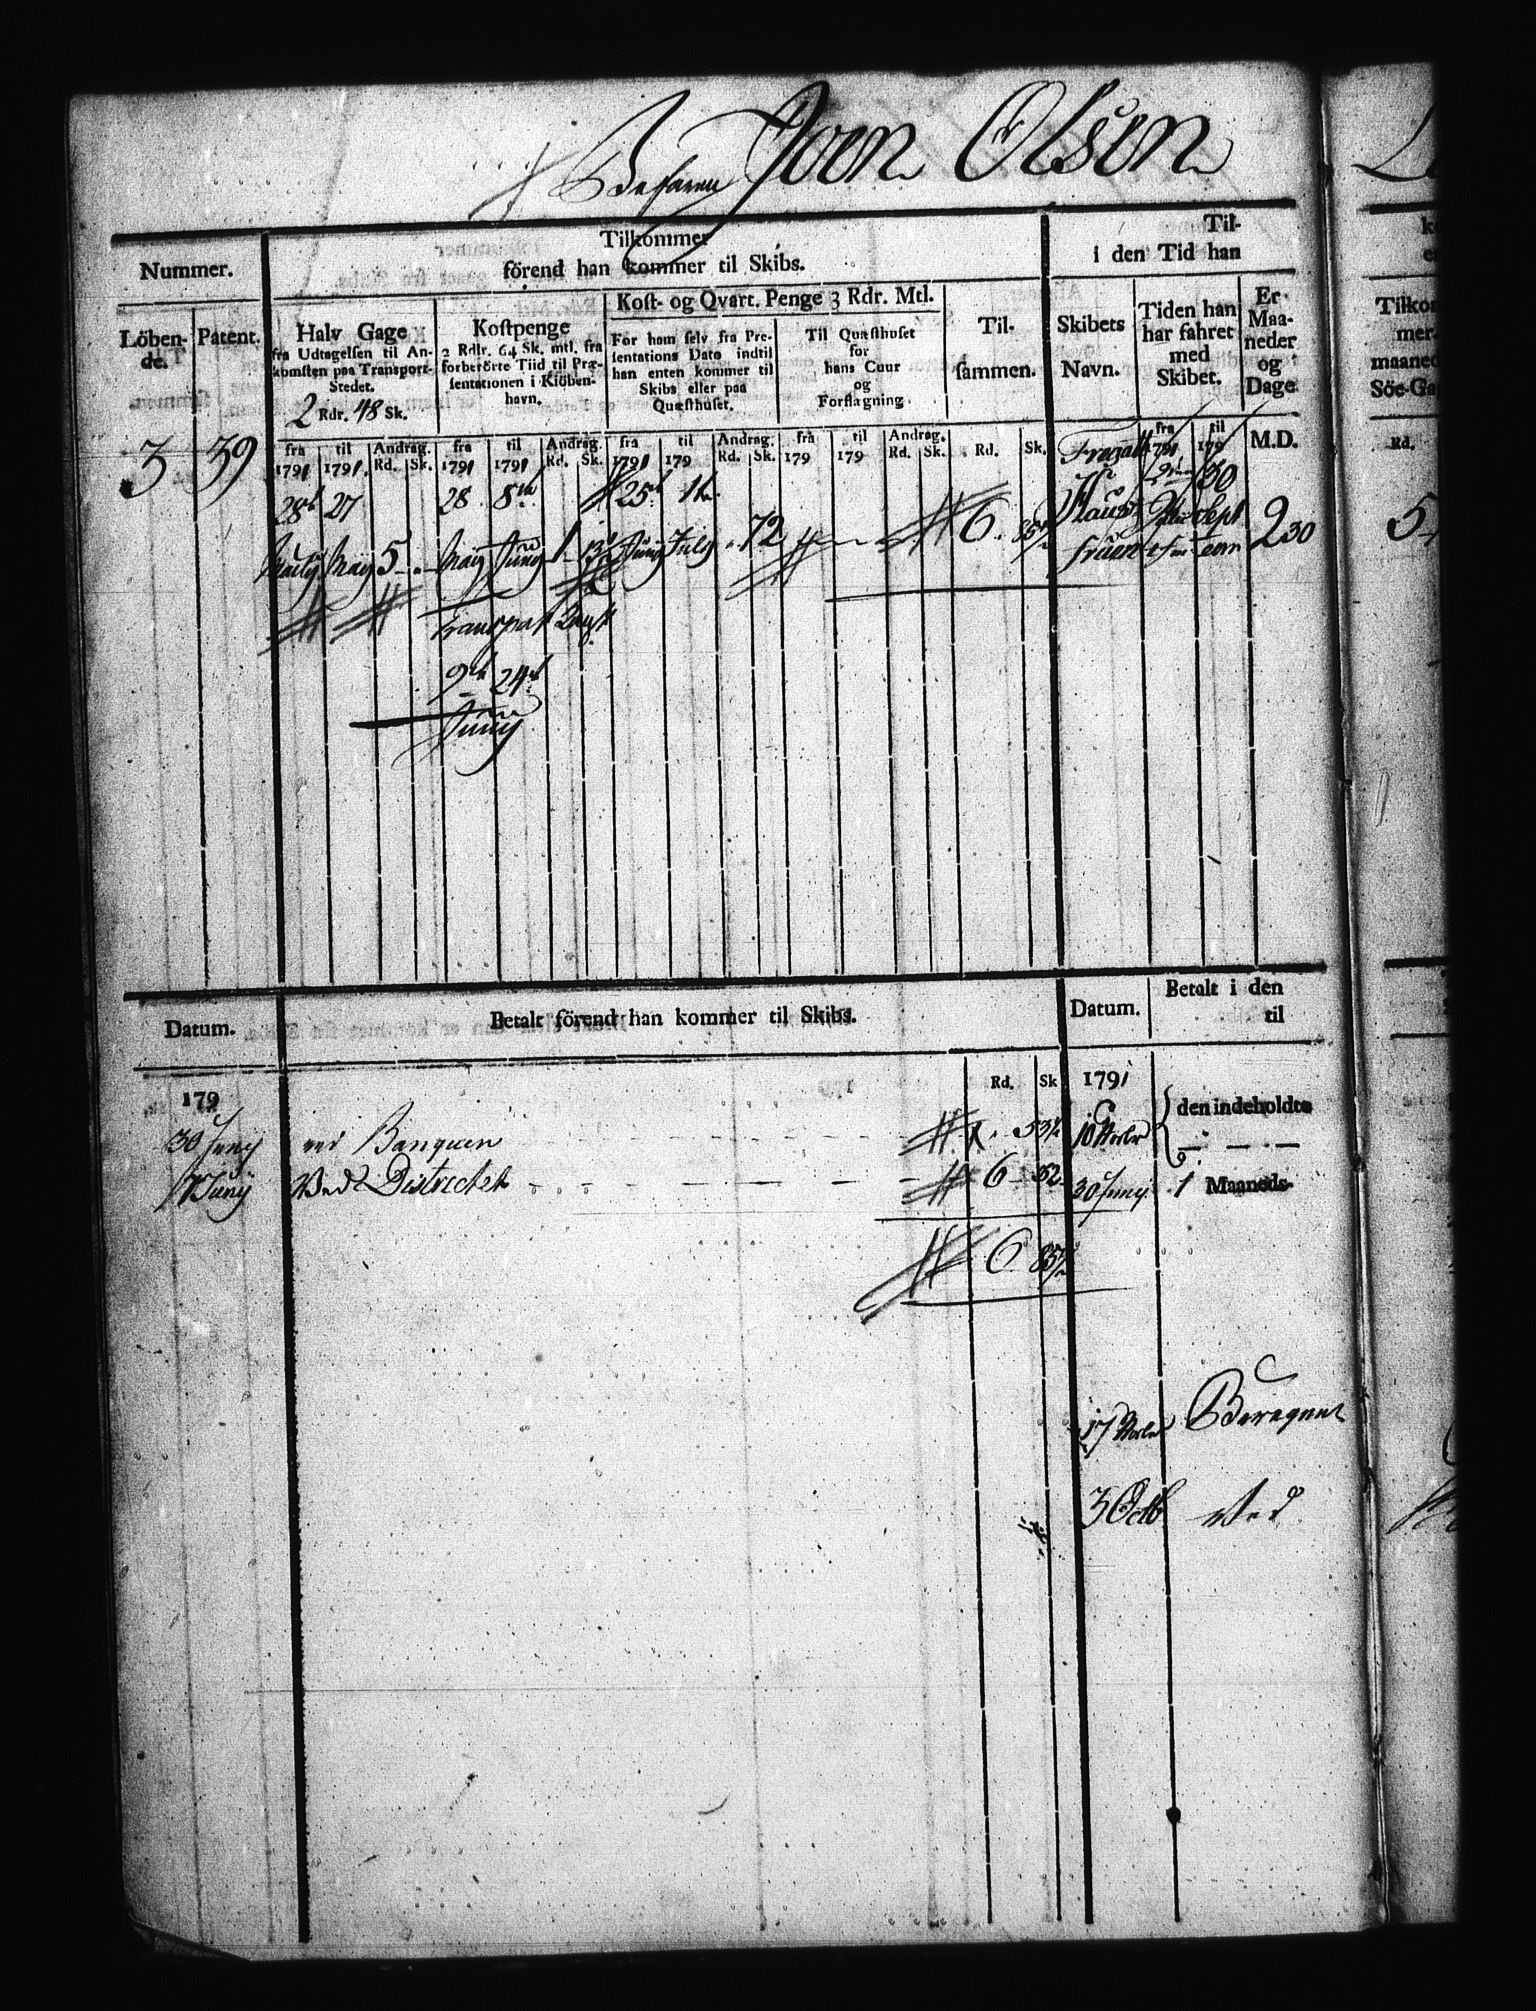 Befaren Joen Olsen
Nummer.
Löben-
de.
Patent.
Tilkommer
förend han kommer til Skibs.
Halv Gage
fra Udtagelsen til An-
komsten paa Transport-
Stedet.
2 Rdr. 48 Sk.
Kostpenge
2 Rdlr. 64 Sk. mtl. fra
forberörte Tiid til Præ-
sentationen i Kiöben-
havn.
Kost- og Qvart. Penge 3 Rdr. Mtl.
For ham selv fra Pre-
sentations Dato indtil
han enten kommer til
Skibs eller paa
Quæsthuset.
Til Quæsthuset
for
hans Cuur
og
Forflagning.
Til-
sammen.
Til-
i den Tid han
Skibets
Navn.
Tiden han
har fahret
med
Skibet.
Er
Maa-
neder
og
Dage
Tilkom
mer
maaned
Söe-Ga
fra til Andrag. fra til Andrag. fra til Andrag. fra til Andrag. Rd. Sk. fra til M.D. Rd.
1791 1791. Rd. Sk. 1791 1791 Rd. Sk. 1791 179 Rd. Sk. 179 179 Rd. Sk. 1791 179
3 39 27 28 8de 25de 1te Fregatt 30
May 5 May Juny 1 Juny July 72 6 Sept 2 30 5
Fruen
Transport
9de 24de
Juny
Datum.
Betalt förend han kommer til Skibs.
Datum.
Betalt i den
til
179
Rd. Sk
1791
30 Juny ved Banquen 53½
den indeholdte
7 Juny Ved Districtet 6 32
30 Juny 1 Maaneds-
6 85½
17 Beregnet
3 Octb Ved